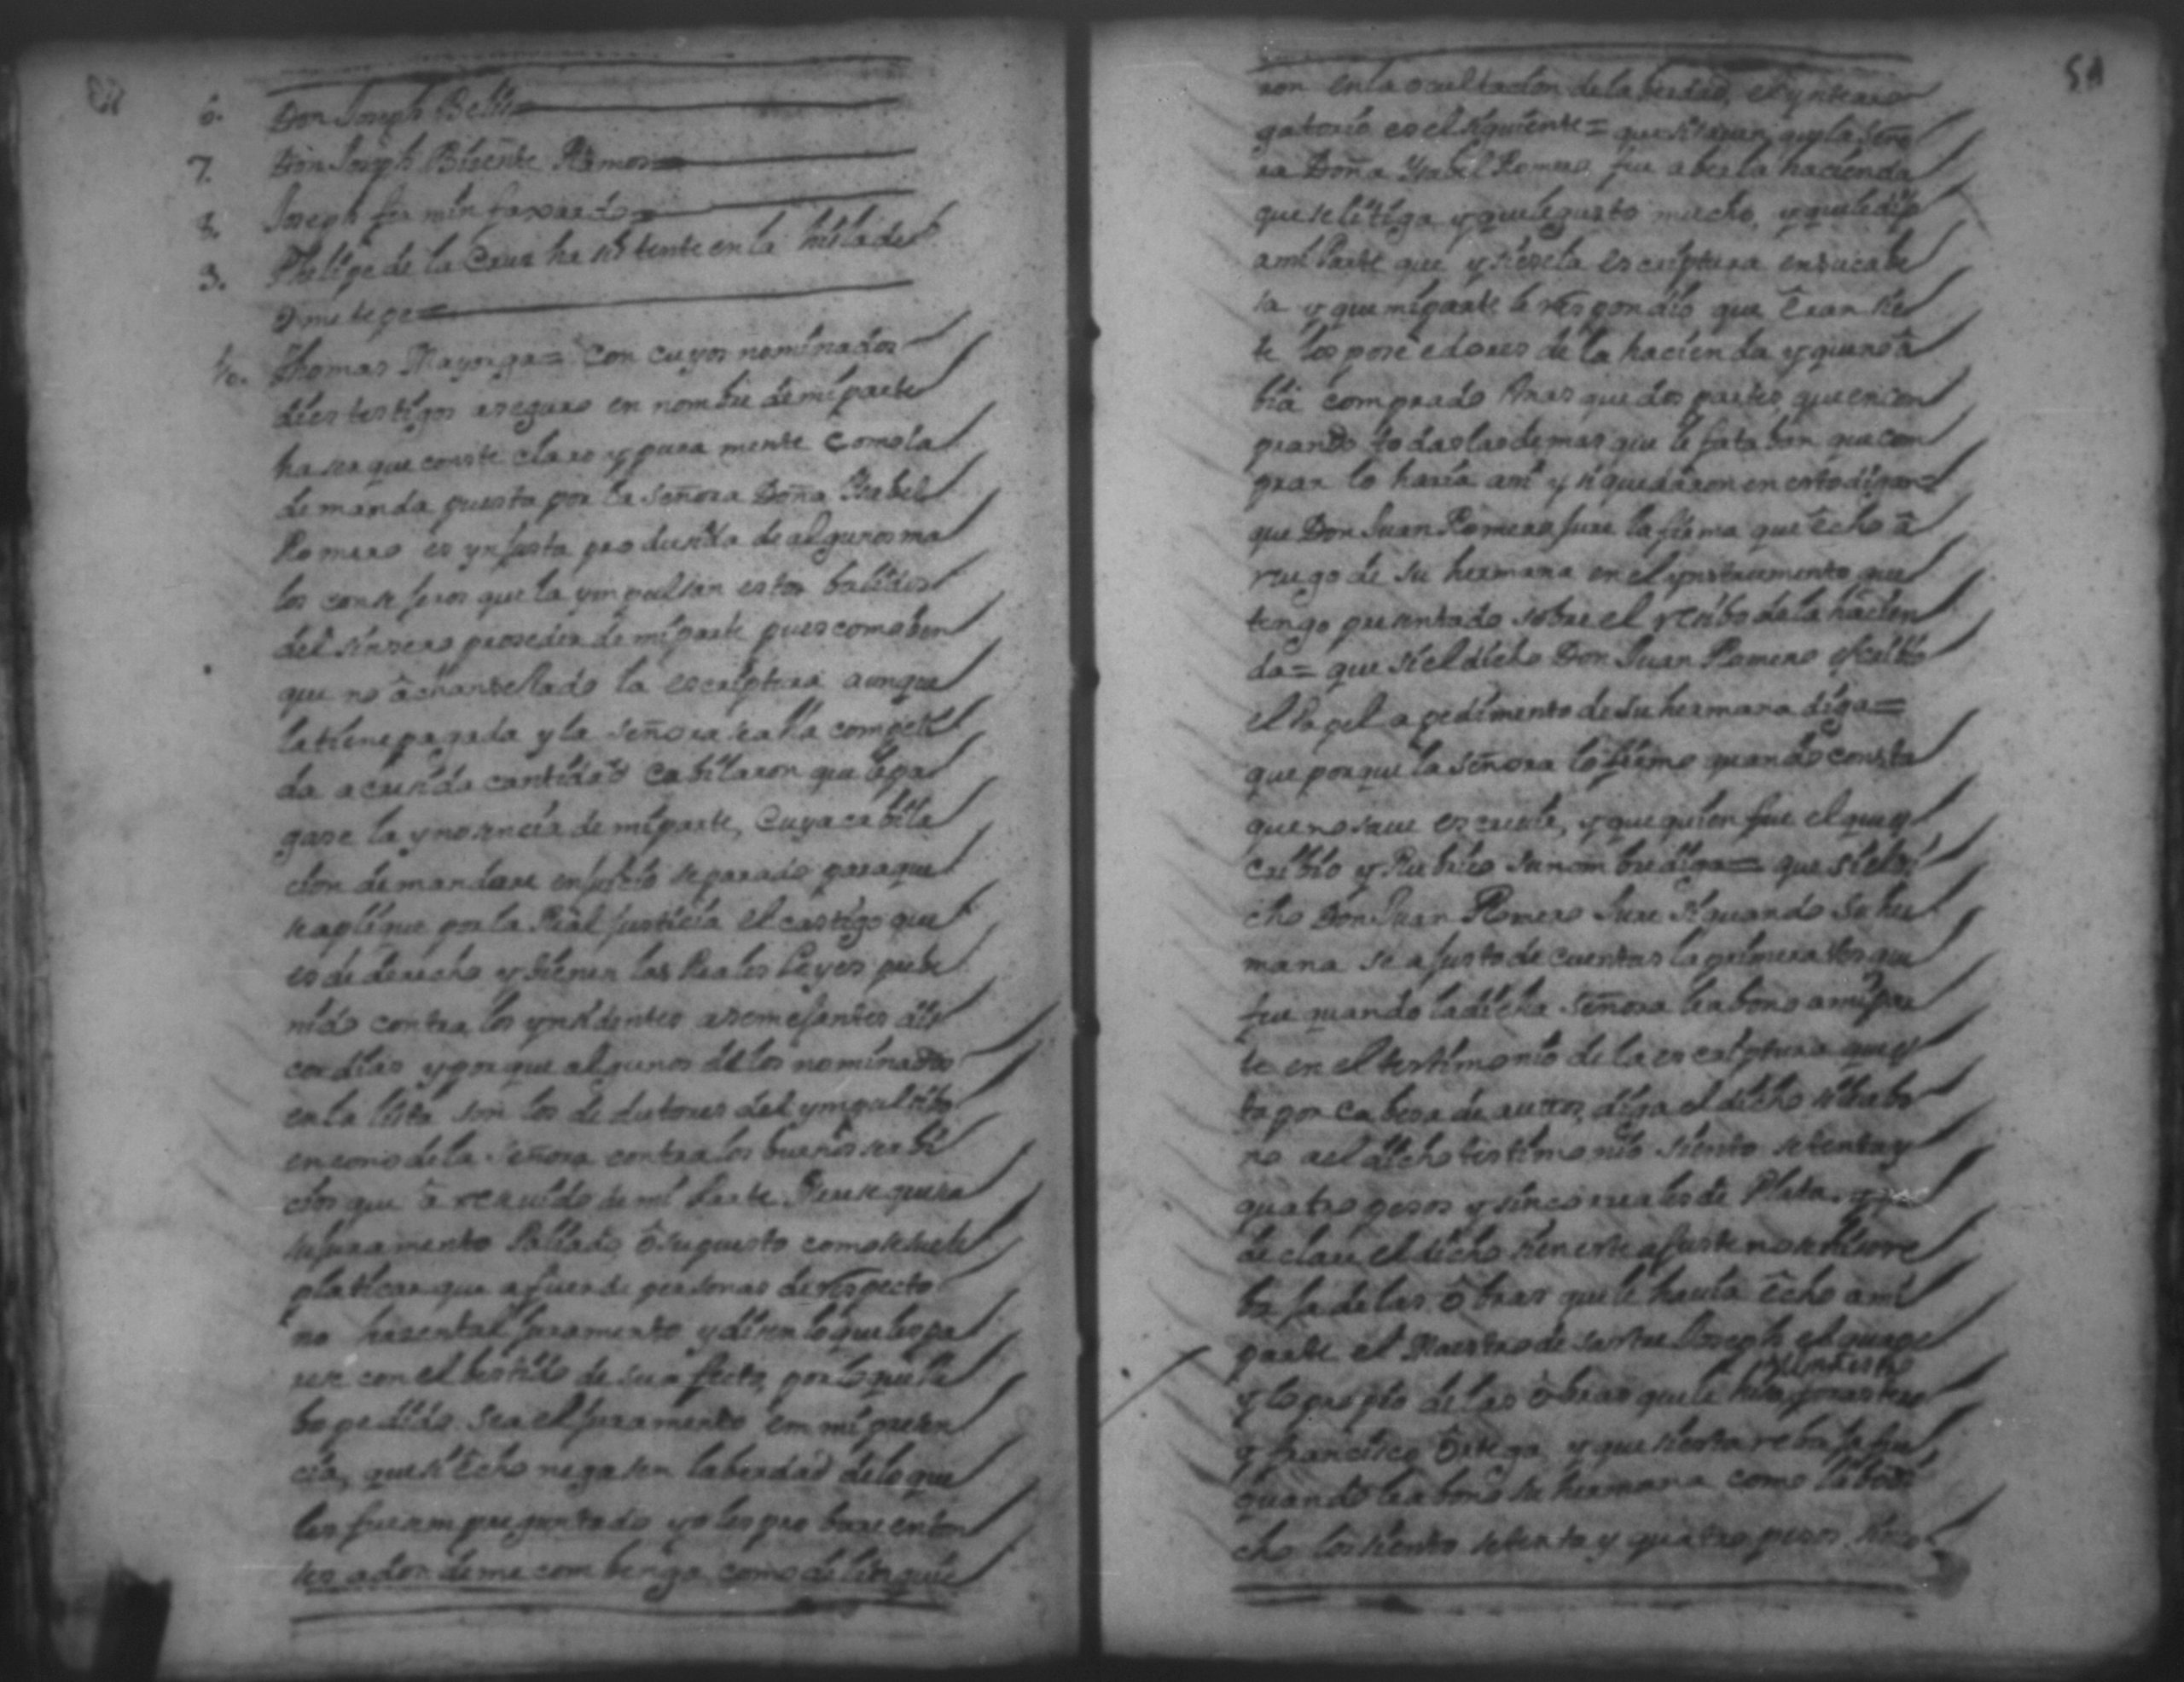 6. Don Joseph Bello
7. Don Joseph Bisente Ramos=
8. Joseph fermin faxardo=
9. Phelipe de la Cruz ha sistente en la hisla de
Ometepe=
10. Thomas Mayorga= Con cuyos nominados
dies testigos aseguro en nombre de mi parte
haser que conste claro y pura mente como la
demanda puesta por la señora Doña Ysabel
Romero es ynjusta produsida de algunos ma
los consejeros que la ympulsan estos balidos
del sinsero proseder de mi parte pues como ben
que no âchanselado la escriptura aunque
la tiene pagada y la señora
da a cantidad cabilaron que le pa
gase la ynosencia de mi parte, Cuya cabila
cion demandare en juicio separado para que
se aplique por la Real justicia el castigo que
es de derecho y tienen las Reales Leyes prebe
nido contra los ynsidentes a semejantes dis
cordias y porque algunos de los nominados
en la lista son los de dutores del ympulsibo
encono de la señora contra los buenos serbi
cios que â resevido de mi Parte
juramento Paliado, ô supuesto como se suele
platicar que a fuer de personas de respecto
no hasen tal juramento y disen lo que les pa
rese con el bestido de su afecto, por lo que lle
bo pedido sea el juramento em mi presen
cia, que si êcho negasen la berdad de lo que
les fueren preguntado yo les pro bare enton
ses a don de me com benga como delinquie
51
ron en la ocultacion de la berdad, el ynterro
gatorio es el siguiente= que si saven que la seño
ra Doña Ysabel Romero fue a ber la hacienda
que se litiga y que le gusto mucho, y que le dijo
a mi Parte que ysiese la escriptura en su cabe
sa y que mi parte le respondio que êran sie
te los poseedores de la hacienda y que no â
bia comprado mas que dos partes que en con
prando todas las demas que le fataban que com
prar lo haria asi y si quedaron en esto digan=
que Don Juan Romero jure la firma que êcho â
ruego de su hermana en el ynstrumento que
tengo presentado sobre el resibo de la hacien
da= que si el dicho Don Juan Romero escribio
el Papel a pedimento de su hermana diga=
que porque la señora lo firmo quando consta
que no save escrevir, y que quien fue el que es
cribio y Rubrico su nombre diga= que si el di
cho Don Juan Romero jure si quando su her
mana se ajusto de cuentas la primera ves que
fue quando la dicha señora le abono a mi par
te en el testimonio de la escriptura que es
ta por cabesa de autos, diga el dicho si le abo
no a el dicho testimonio siento setenta y
quatro pesos y sinco reales de Plata, y
declare el dicho si en este ajuste no se hiso re
ba ja de las ôbras que le havia êcho a mi
parte el Maestro de sastre Joseph
y lo propio de las ôbras que le hiso
y francisco Ôrtega y que si esta rebaja fue
quando le abono su hermana como
cho los siento setenta y quatro pesos sinco